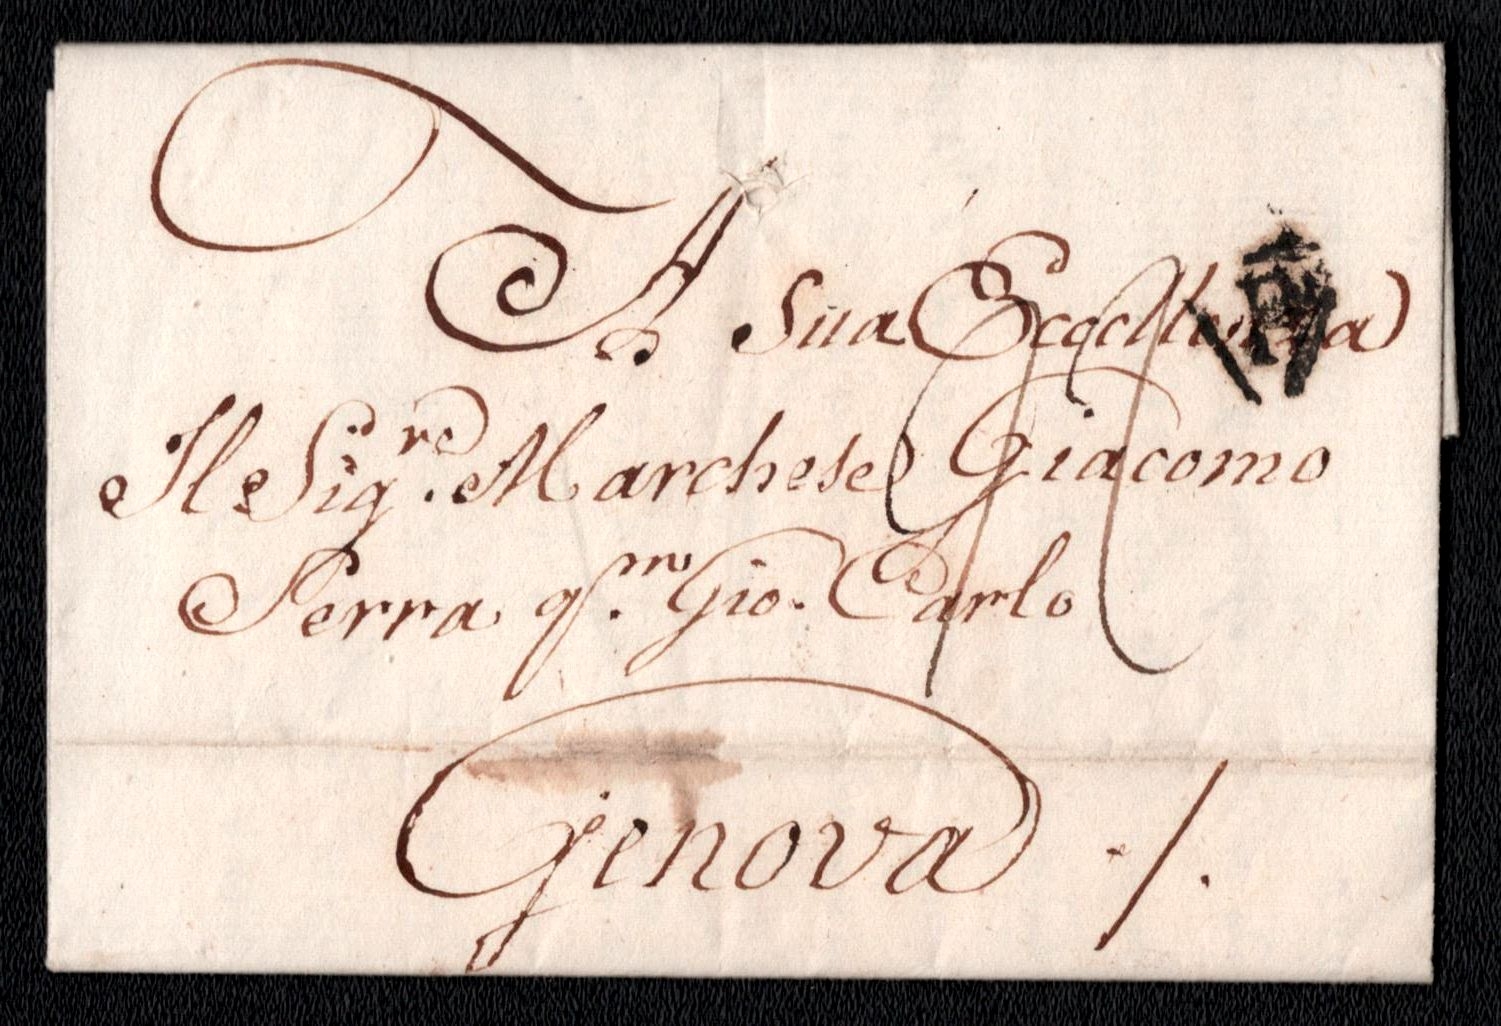 A Sua Eccellenza
Il Sig.re Marchese Giacomo
Serra q.m Gio. Carlo
Genova /.